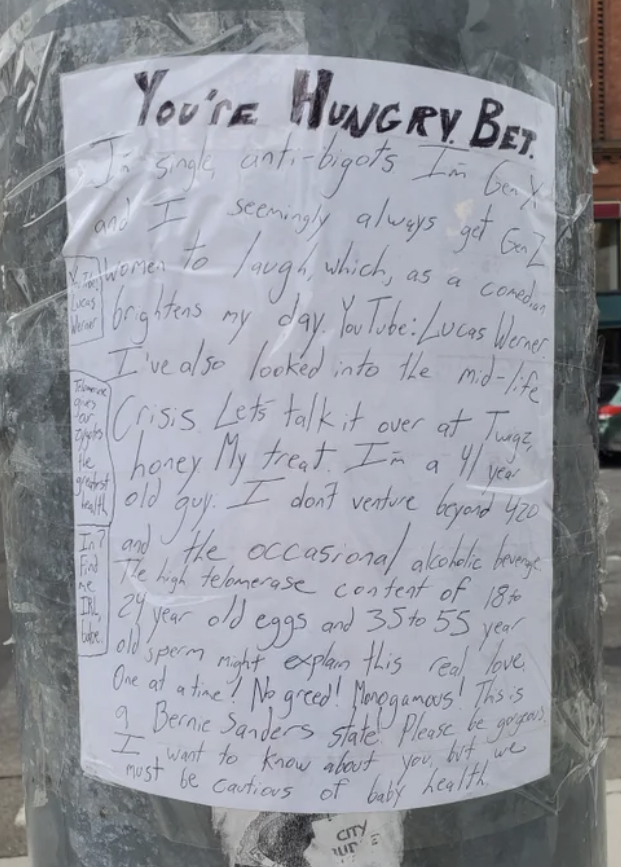 YOU'RE HUNGRY. BET.
I'm single, anti-bigots I'm Gen X
and I seemingly always get Gen Z
women to laugh, which, as a comedian,
brightens my day. YouTube: Lucas Werner.
I've also looked into the mid-life
Crisis Let's talk it over at Twigz,
honey My treat. I'm a 41 year
old guy. I don't venture beyond 420
and the occasional alcoholic beverage.
The high telomerase content of 18 to
24 year old eggs and 35 to 55 year
old sperm might explain this real love.
One at a time! No greed! Monogamous! This is
a Bernie Sanders state! Please be gorgeous.
I want to know about you, but we
must be cautious of baby health.
Lucas
Werner
Telomerase
gives
our
zygotes
the
greatest
health
In?
Find
me
IRL,
babe.
CITY